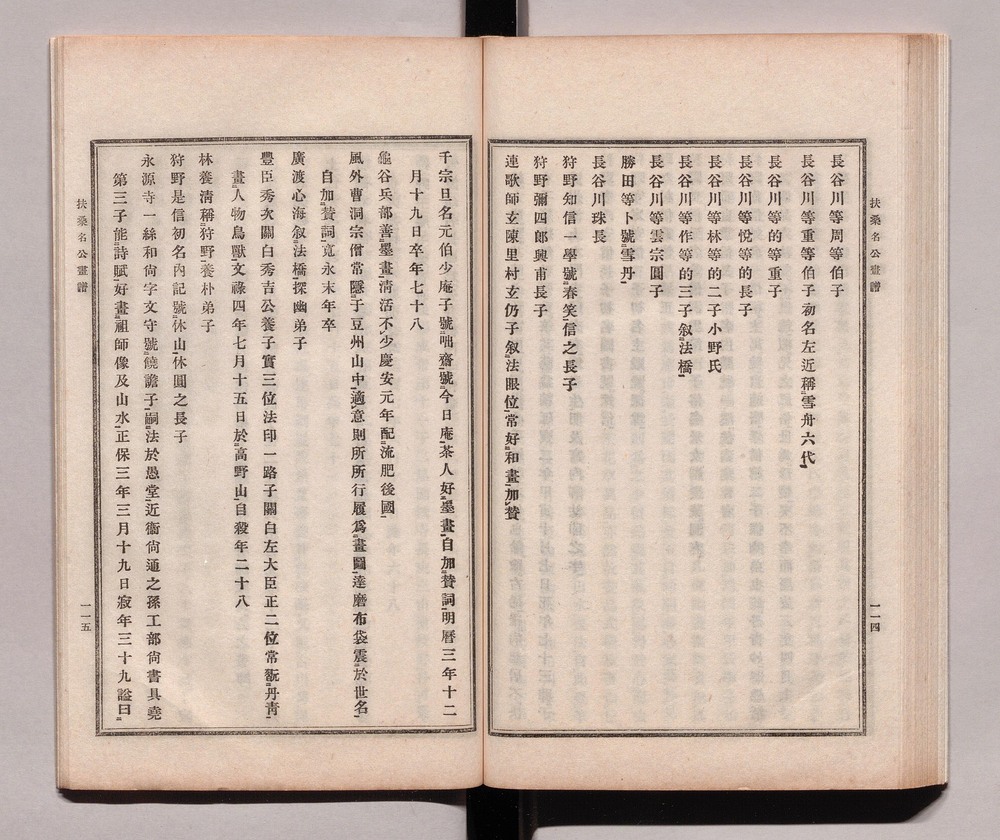 扶桑名公畫譜
一一四
長谷川等周等伯子
長谷川等重等伯子初名左近稱雪舟六代
長谷川等的等重子
長谷川等悅等的長子
長谷川等林等的二子小野氏
長谷川等作等的三子叙法橋
長谷川等雲宗圓子
勝田等卜號雪丹
長谷川珠長
狩野知信一學號春笑信之長子
狩野彌四郎興甫長子
連歌師玄陳里村玄仍子叙法眼位常好和畫加賛
千宗旦名元伯少庵子號咄齋號今日庵茶人好墨畫自加賛詞明曆三年十二
月十九日卒年七十八
龜谷兵部善墨畫淸活不少慶安元年配流肥後國
風外曹洞宗僧常隱于豆州山中適意則所所行履爲畫圖達磨布袋震於世名
自加賛詞寬永末年卒
廣渡心海叙法橋探幽弟子
豐臣秀次關白秀吉公養子實三位法印一路子關白左大臣正二位常翫丹靑
畫人物鳥獸文祿四年七月十五日於高野山自殺年二十八
林養淸稱狩野養朴弟子
狩野是信初名內記號休山休圓之長子
永源寺一絲和尙字文守號饒譫子嗣法於愚堂近衞尙通之孫工部尙書具堯
第三子能詩賦好畫祖師像及山水正保三年三月十九日寂年三十九謚曰
扶桑名公畫譜
一一五